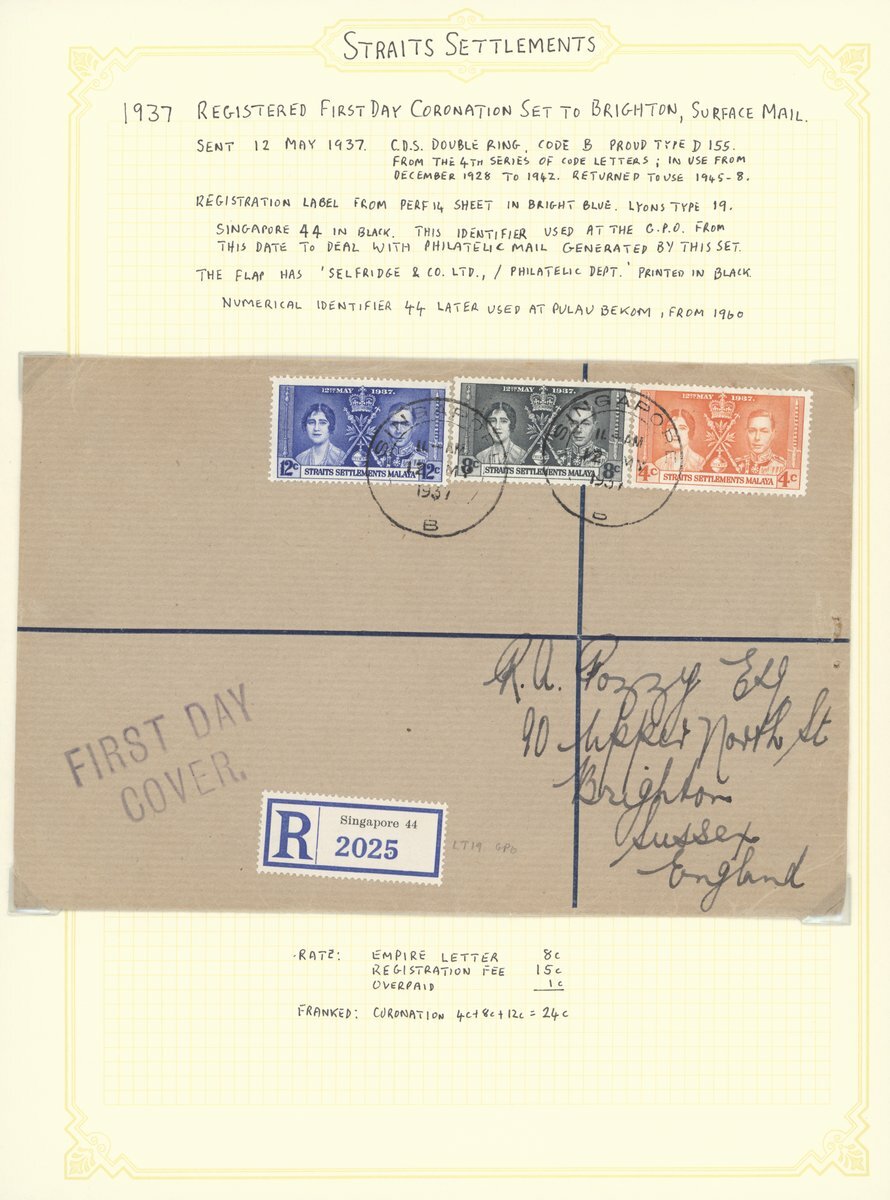 STRAITS SETTLEMENTS
1937 REGISTERED FIRST DAY CORONATION SET TO BRIGHTON, SURFACE MAIL.
SENT 12 MAY 1937. C.D.S. DOUBLE RING, CODE B PROUD TYPE D 155.
FROM THE 4TH SERIES OF CODE LETTERS; IN USE FROM
DECEMBER 1928 TO 1942. RETURNED TO USE 1945-8.
REGISTRATION LABEL FROM PERF 14 SHEET IN BRIGHT BLUE. LYONS TYPE 19.
SINGAPORE 44 IN BLACK. THIS IDENTIFIER USED AT THE G.P.O. FROM
THIS DATE TO DEAL WITH PHILATELIC MAIL GENERATED BY THIS SET.
THE FLAP HAS 'SELFRIDGE & CO. LTD., / PHILATELIC DEPT.' PRINTED IN BLACK.
NUMERICAL IDENTIFIER 44 LATER USED AT PULAU BEKOM, FROM 1960
12TH MAY 1937.
12c 12c
STRAITS SETTLEMENTS MALAYA
12TH MAY 1937.
8c 8c
STRAITS SETTLEMENTS MALAYA
12TH MAY 1937.
4c 4c
STRAITS SETTLEMENTS MALAYA
SINGAPORE
AM
12 MY
1937
B
SINGAPORE
AM
12 MY
1937
B
R.A. Pozzy Esq
90 Upper North St
Brighton
Sussex
England
FIRST DAY
COVER.
R
Singapore 44
2025
LT19 GPO
RATE: EMPIRE LETTER 8c
REGISTRATION FEE 15c
OVERPAID 1c
FRANKED: CORONATION 4c+8c+12c = 24c